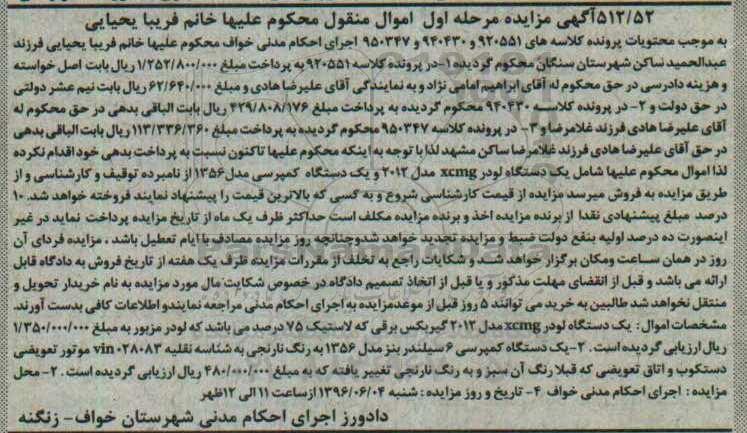 ۵۱۲/۵۲آگهی مزایده مرحله اول اموال منقول محکوم علیها خانم فریبا یحیایی
به موجب محتویات پرونده کلاسه های ۹۲۰۵۵۱ و ۹۴۰۴۳۰ و ۹۵۰۳۴۷ اجرای احکام مدنی خواف محکوم علیها فریبا یحیایی فرزند
عبدالحمید ساکن شهرستان سنگان محکوم گردیده ۱-در پرونده کلاسه ۹۲۰۵۵۱ به پرداخت مبلغ ۱/۲۵۲/۸۰۰/۰۰۰ ریال بابت اصل خواسته
و هزینه دادرسی در حق محکوم له آقای ابراهیم امامی نژاد و به نمایندگی آقای علیرضا هادی و مبلغ ۶۲/۶۴۰/۰۰۰ ریال بابت نیم عشر دولتی
در حق دولت و ۲- در پرونده کلاسه ۹۴۰۴۳۰ محکوم گردیده به پرداخت مبلغ ۴۲۹/۸۰۸/۱۷۶ ریال بابت الباقی بدهی در حق محکوم له
آقای علیرضا هادی فرزند غلامرضا و ۳- در پرونده کلاسه ۹۵۰۳۴۷ محکوم گردیده به پرداخت مبلغ ۱۱۳/۳۳۶/۳۶۰ ریال بابت الباقی بدهی
در حق آقای علیرضا هادی فرزند غلامرضا ساکن مشهد لذا با توجه به اینکه محکوم علیها تاکنون نسبت به پرداخت بدهی خود اقدام نکرده
لذا اموال محکوم علیها شامل یک دستگاه لودر xcmg مدل ۲۰۱۲ و یک دستگاه کمپرسی مدل ۱۳۵۶ از نامبرده توقیف و کارشناسی و از
طریق مزایده به فروش میرسد مزایده از قیمت کارشناسی شروع و به کسی که بالاترین قیمت را پیشنهاد نمایند فروخته خواهد شد. ۱۰
درصد مبلغ پیشنهادی نقدا از برنده مزایده اخذ و برنده مزایده مکلف است حداکثر ظرف یک ماه از تاریخ مزایده پرداخت نماید در غیر
اینصورت ده درصد اولیه بنفع دولت ضبط و مزایده تجدید خواهد شدوچنانچه روز مزایده مصادف با ایام تعطیل باشد ، مزایده فردای آن
روز در همان ساعت ومکان برگزار خواهد شد و شکایات راجع به تخلف از مقررات مزایده ظرف یک هفته از تاریخ فروش به دادگاه قابل
ارائه می باشد و قبل از انقضای مهلت مذکور و یا قبل از اتخاذ تصمیم دادگاه در خصوص شکایت مال مورد مزایده به نام خریدار تحویل و
منتقل نخواهد شد طالبین به خرید می توانند ۵ روز قبل از موعدمزایده به اجرای احکام مدنی مراجعه نمایندو اطلاعات کافی بدست آورند.
مشخصات اموال: یک دستگاه لودر xcmg مدل ۲۰۱۲ گیربکس برقی که لاستیک ۷۵ درصد می باشد که لودر مزبور به مبلغ ۱/۳۵۰/۰۰۰/۰۰۰
ریال ارزیابی گردیده است. ۲-یک دستگاه کمپرسی ۶ سیلندر بنز مدل ۱۳۵۶ به رنگ نارنجی به شناسه نقلیه vin ۰۲۸۰۸۳ موتور تعویضی
دستکوب و اتاق تعویضی که قبلا رنگ آن سبز و به رنگ نارنجی تغییر یافته که به مبلغ ۴۸۰/۰۰۰/۰۰۰ ریال ارزیابی گردیده است. ۲- محل
مزایده: اجرای احکام مدنی خواف ۴- تاریخ و روز مزایده: شنبه ۱۳۹۶/۰۶/۰۴ ازساعت ۱۱ الی ۱۲ظهر
دادورز اجرای احکام مدنی شهرستان خواف- زنگنه